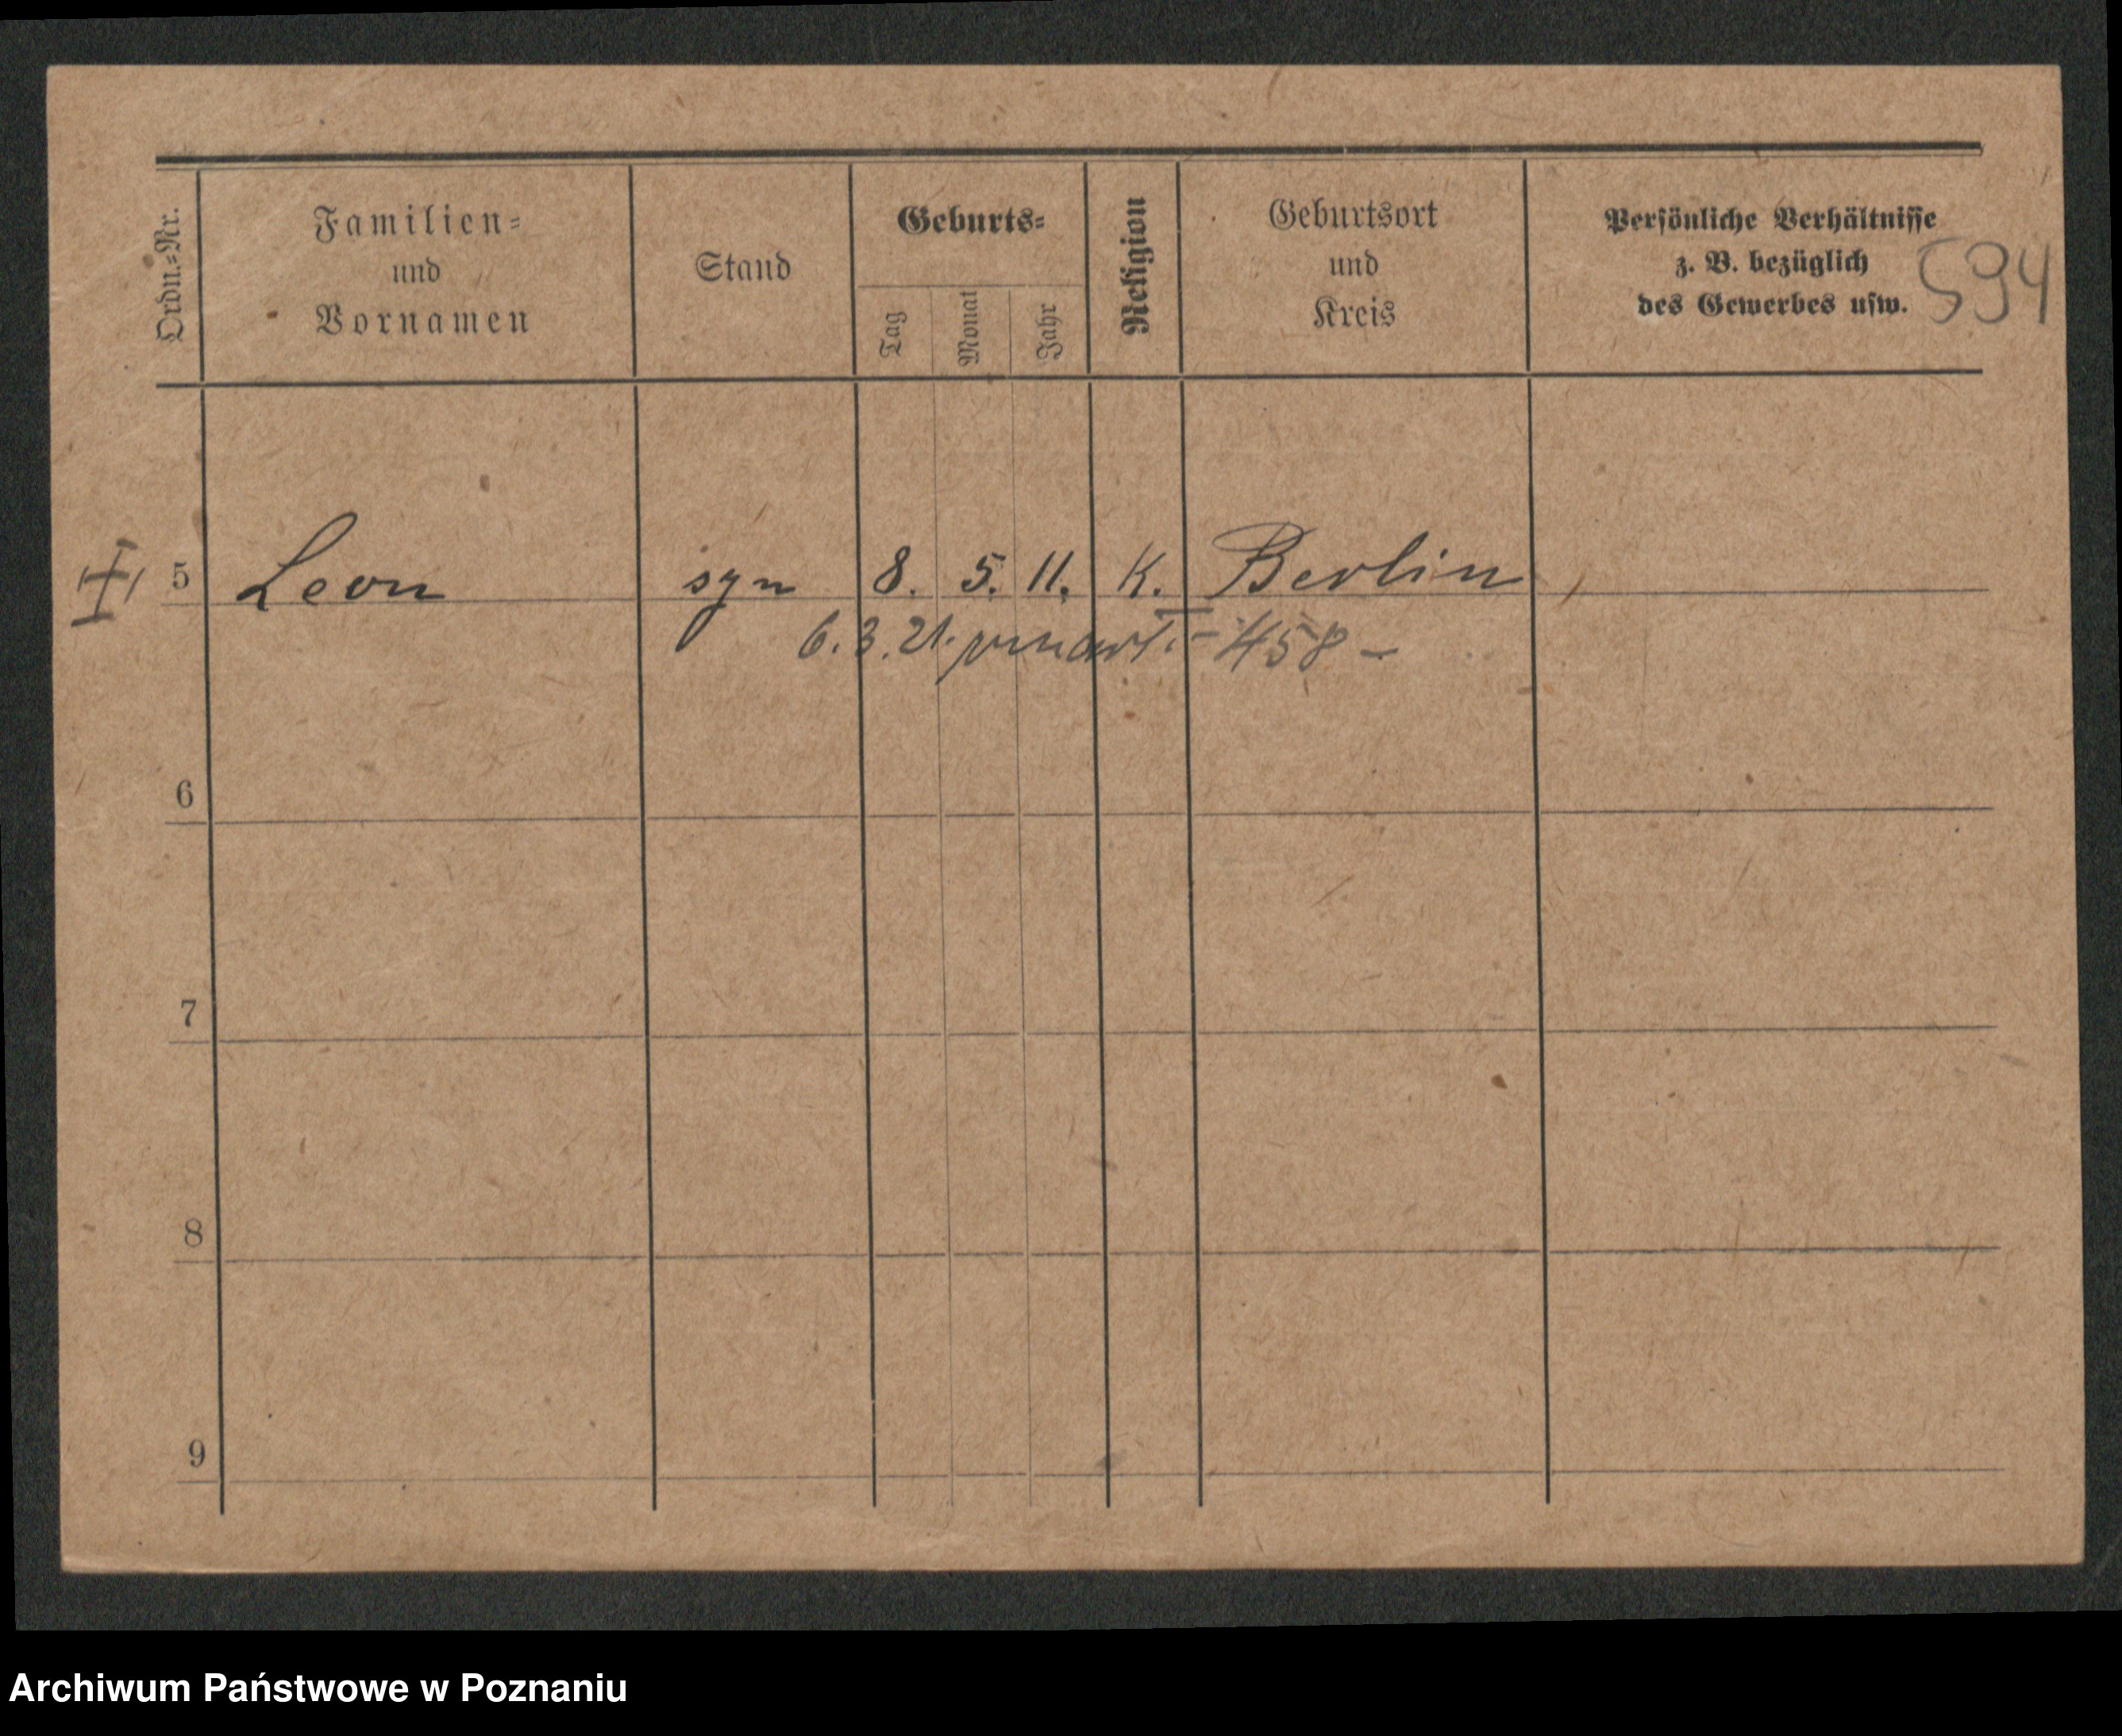 Ordn.-Nr.
Familien-
und
Vornamen
Stand
Geburts-
Tag
Monat
Jahr
Religion
Geburtsort
und
Kreis
Persönliche Verhältnisse
z. B. bezüglich
des Gewerbes usw.
594
5 Leon syn 8. 5. 11. K. Berlin
6.3.21. zmarł - 458 -
6
7
8
9
Archiwum Państwowe w Poznaniu